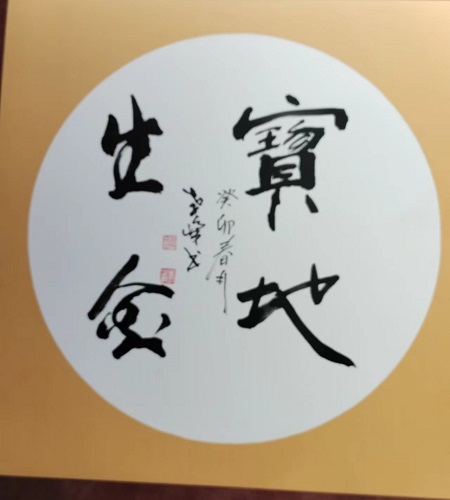 寶地
生金
癸卯春月